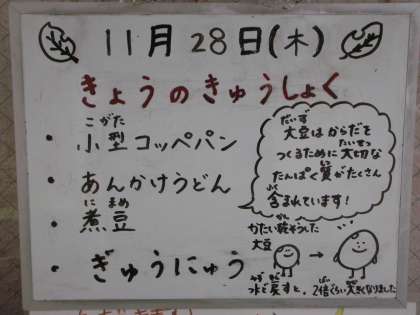 11月28日(木)
きょうのきゅうしょく
・小型コッペパン
・あんかけうどん
・煮豆
・ぎゅうにゅう
大豆はからだを
つくるために大切な
たんぱく質がたくさん
含まれています!
かたい乾そうした
大豆
水で戻すと、2倍ぐらい大きくなりました